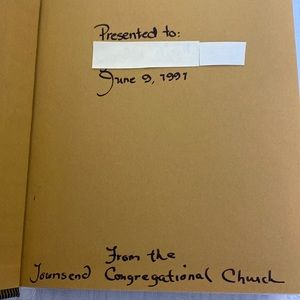 Presented to:
June 9, 1991
From the
Townsend Congregational Church